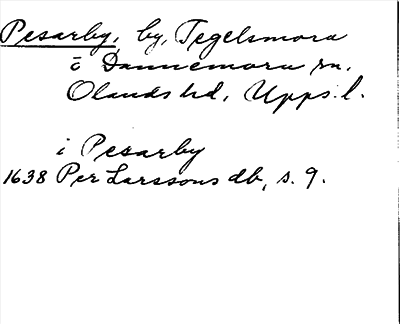 Pesarby, by, Tegelsmora
i Dannemora sn.
Olands hd, Upps. l.
i Pesarby
1638 Per Larssons db, s. 9.